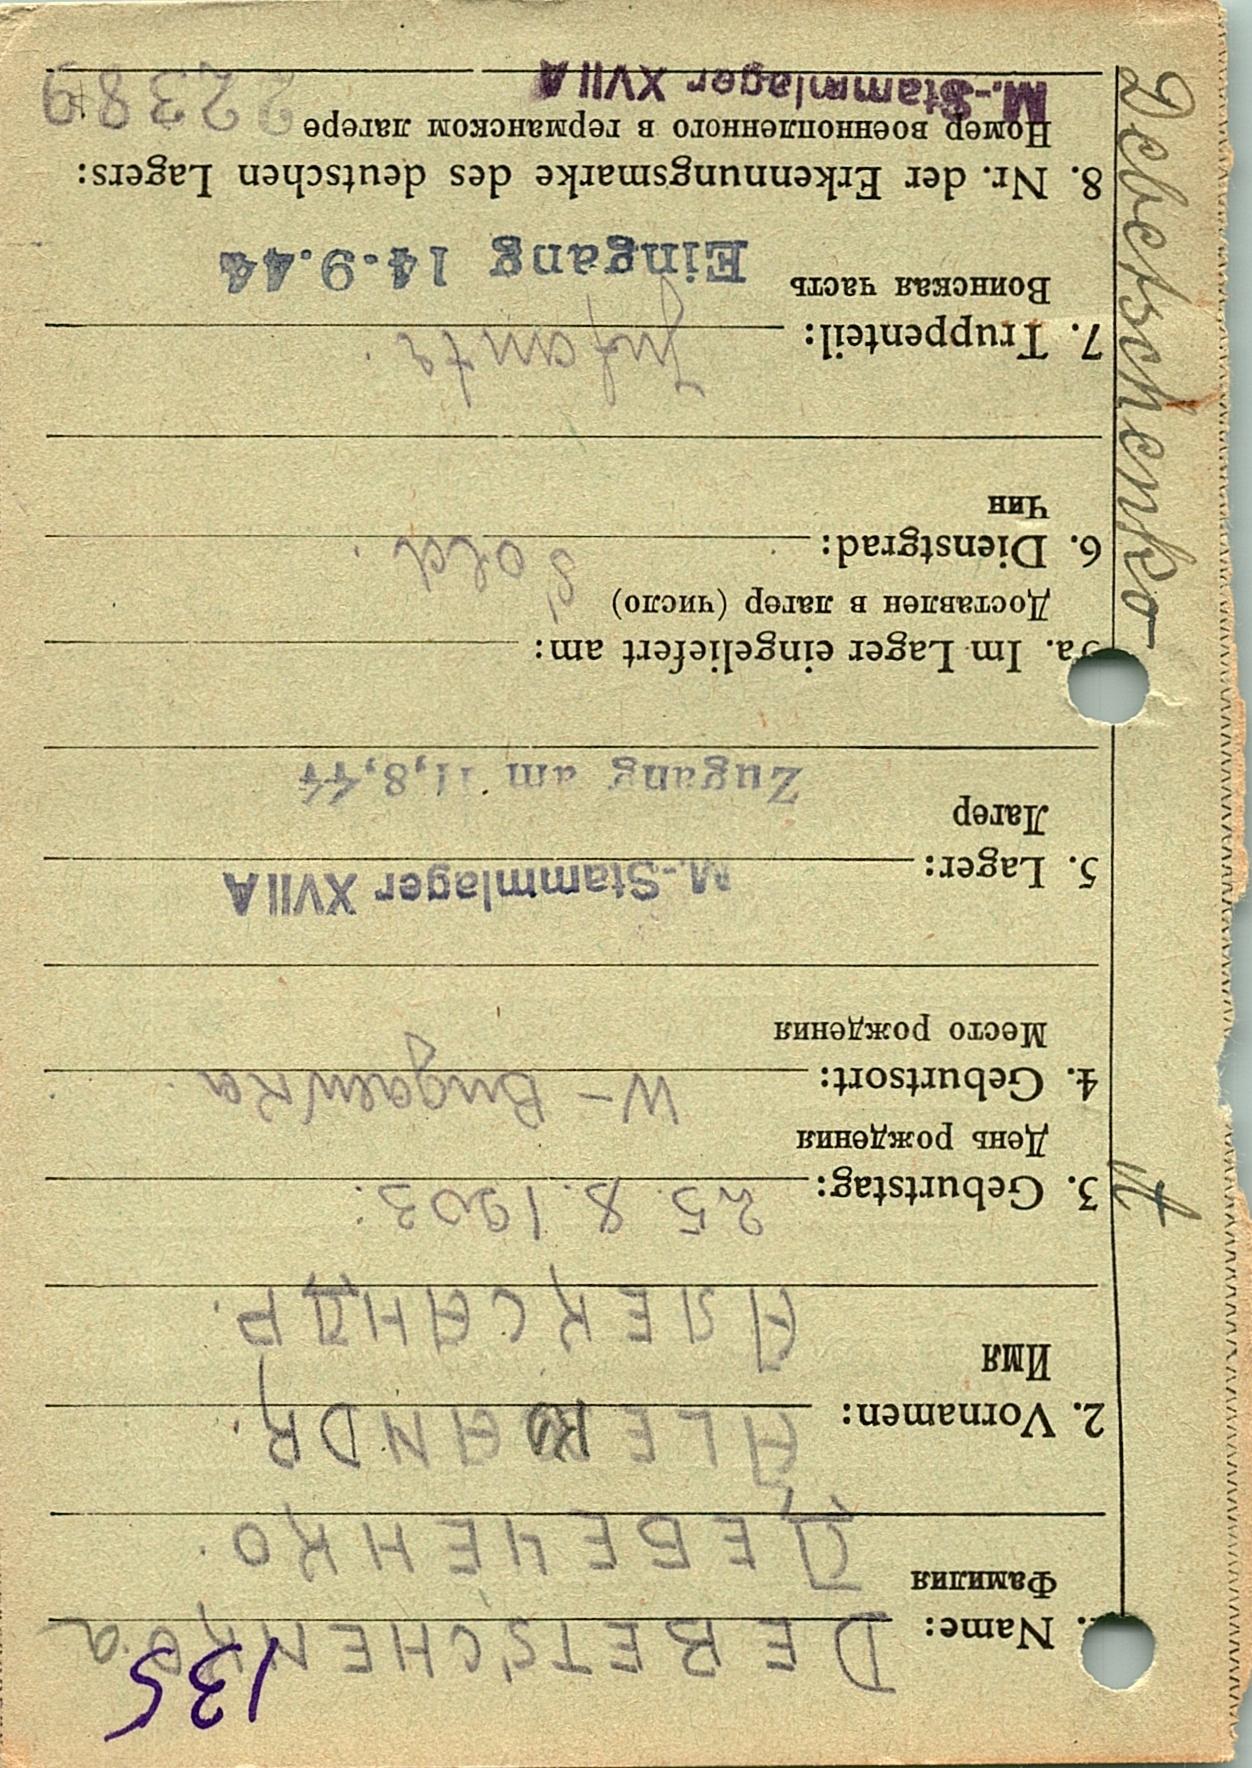 135
1. Name: DEBETSCHENKO.a
Фамилия
ДЕБЕЧЕНКО.
2. Vornamen: ALEKSANDR.
Имя
АЛЕКСАНДР.
3. Geburtstag: 25.8.1903.
День рождения
4. Geburtsort: W - Bugaewka.
Место рождения
5. Lager: M.-Stammlager XVII A
Лагер
Zugang am 11,8,44
5a. Im Lager eingeliefert am:
Доставлен в лагер (число)
6. Dienstgrad: Sold.
Чин
7. Truppenteil: Infantr.
Воинская часть
Eingang 14.9.44
8. Nr. der Erkennungsmarke des deutschen Lagers:
Номер военнопленного в германском лагере
M.-Stammlager XVII A
Debetschenko